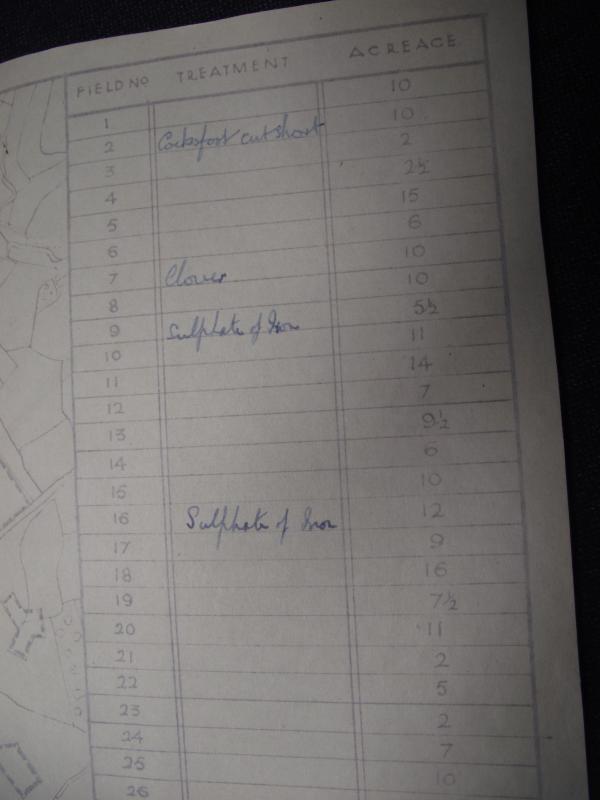 FIELD No TREATMENT ACREAGE
1 10
2 Cocksfoot cut short 10
3 2
4 2½
5 15
6 6
7 Clover 10
8 10
9 Sulphate of Iron 5½
10 11
11 14
12 7
13 9½
14 6
15 10
16 Sulphate of Iron 12
17 9
18 16
19 7½
20 11
21 2
22 5
23 2
24 7
25 10
26